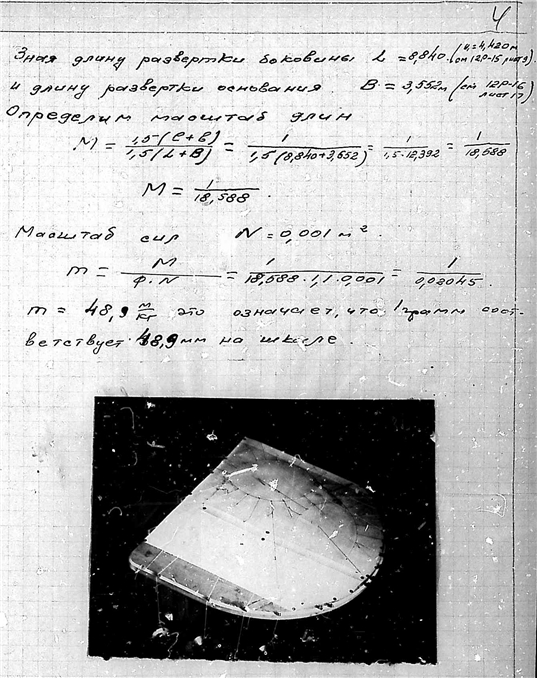 4
Зная длину развертки боковины L = 8,840. (e₁=4,420м см 12р-15 лист 9).
и длину развертки основания. B = 3,552м (см 12р-16 лист 17)
Определим масштаб длин
M = 1,5(l+b) / 1,5(L+B) = 1 / 1,5(8,840+3,552) = 1 / 1,5·12,392 = 1 / 18,588
M = 1 / 18,588 .
Масштаб сил N = 0,001 м².
m = M / Ф·N = 1 / 18,588·1,1·0,001 = 1 / 0,02045 .
m = 48,9 м/кг это означает, что 1 грамм соот-
ветствует 48,9 мм на шкале.